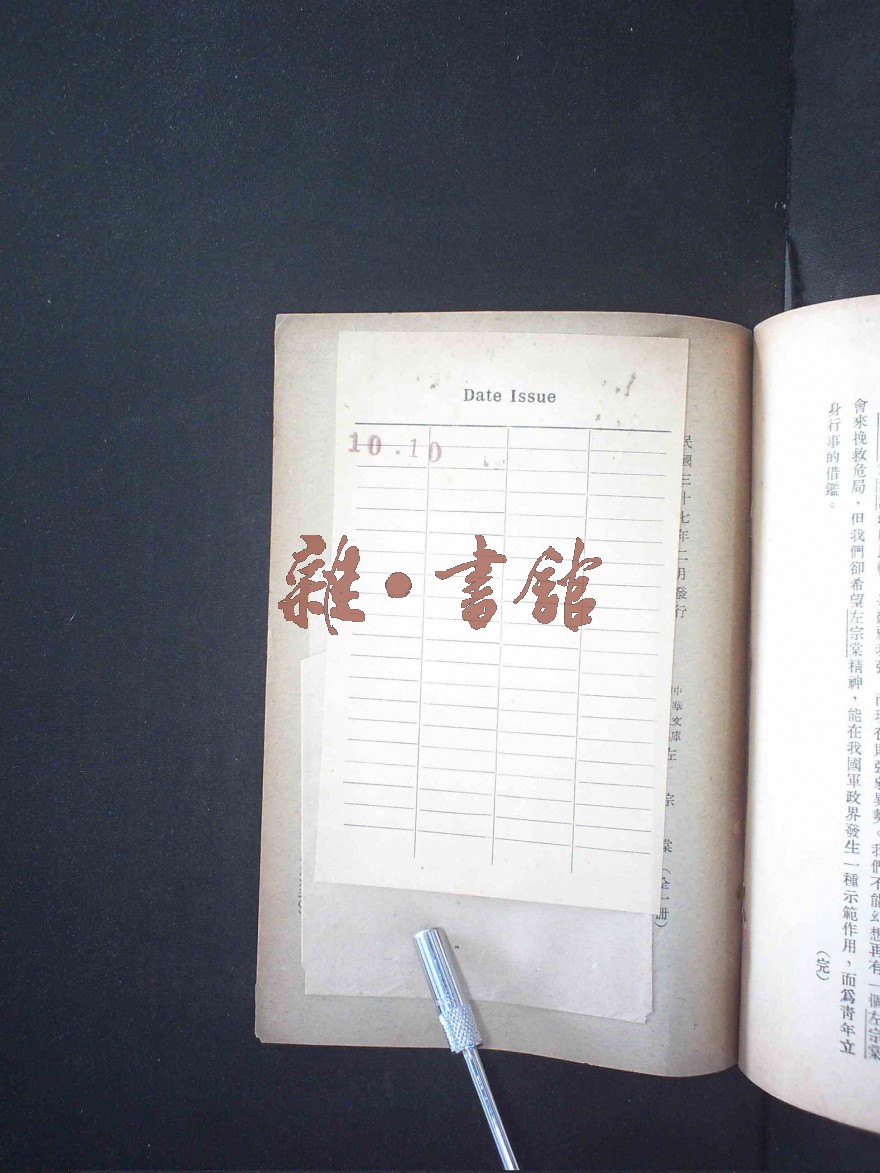 Date Issue
10.10
雜·書館
民國三十七年二月發行
中華文庫
左宗棠（全一冊）
我們不能幻想再有一個左宗棠
會來挽救危局，但我們卻希望左宗棠精神，能在我國軍政界發生一種示範作用，而為青年立
身行事的借鑑。
（完）